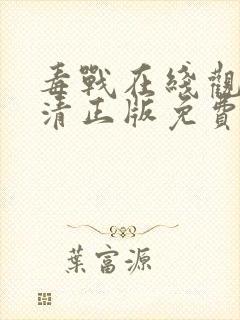 毒戰在綫觀
清正版免費
葉富源